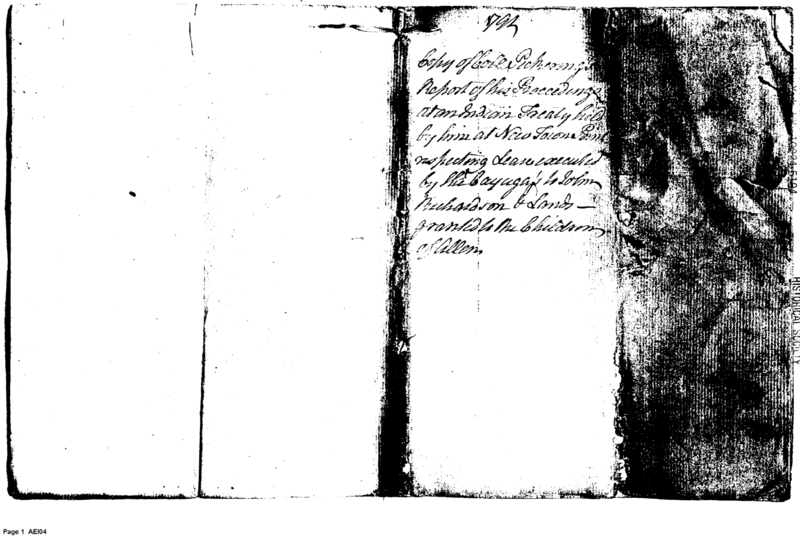 1792
Copy of Colo. Pickerings
Report of his Proceedings
at an Indian Treaty held
by him at New Town Point
respecting Lease executed
by the Cayuga's to John
Richardson & Lands —
granted to the Children
of Allen
HISTORICAL SOCIETY
Page 1 AEI04